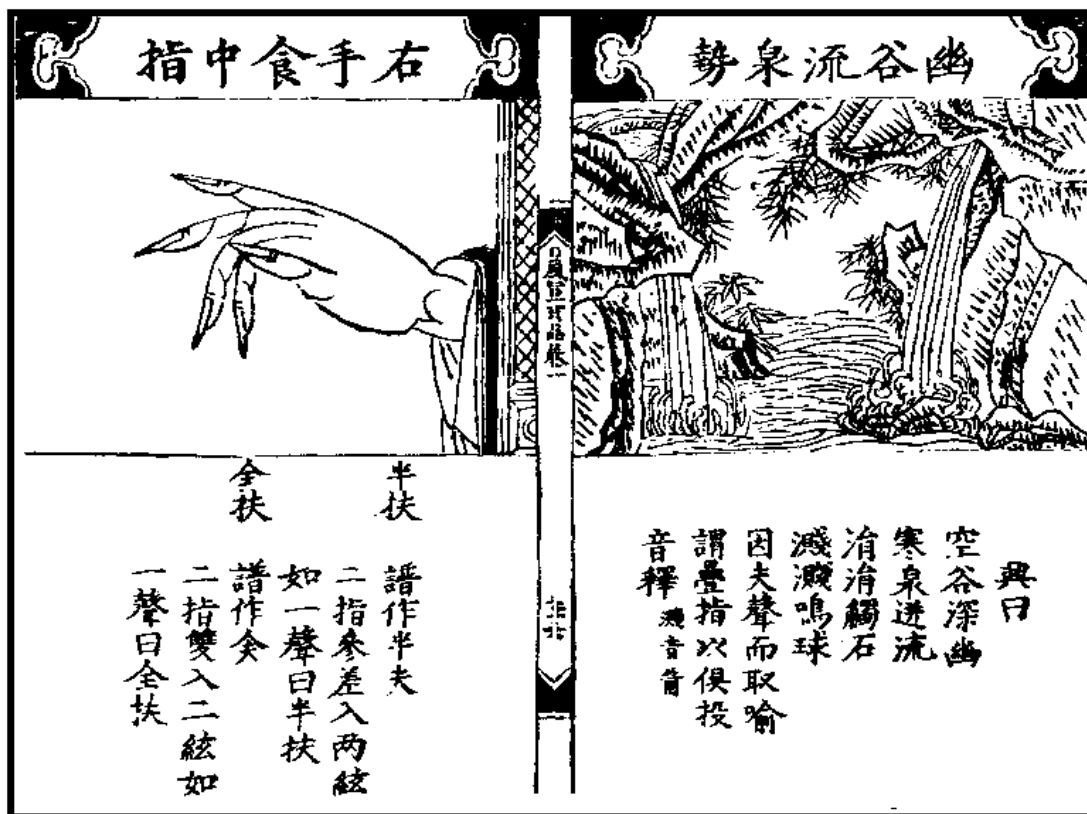 幽谷流泉勢
興曰
空谷深幽
寒泉迸流
涓涓觸石
濺濺鳴球
因夫聲而取喻
謂疊指以俱投
音釋 濺音箭
右手食中指
半扶
譜作半夫
二指參差入两絃
如一聲曰半扶
全扶
譜作
二指雙入二絃如
一聲曰全扶